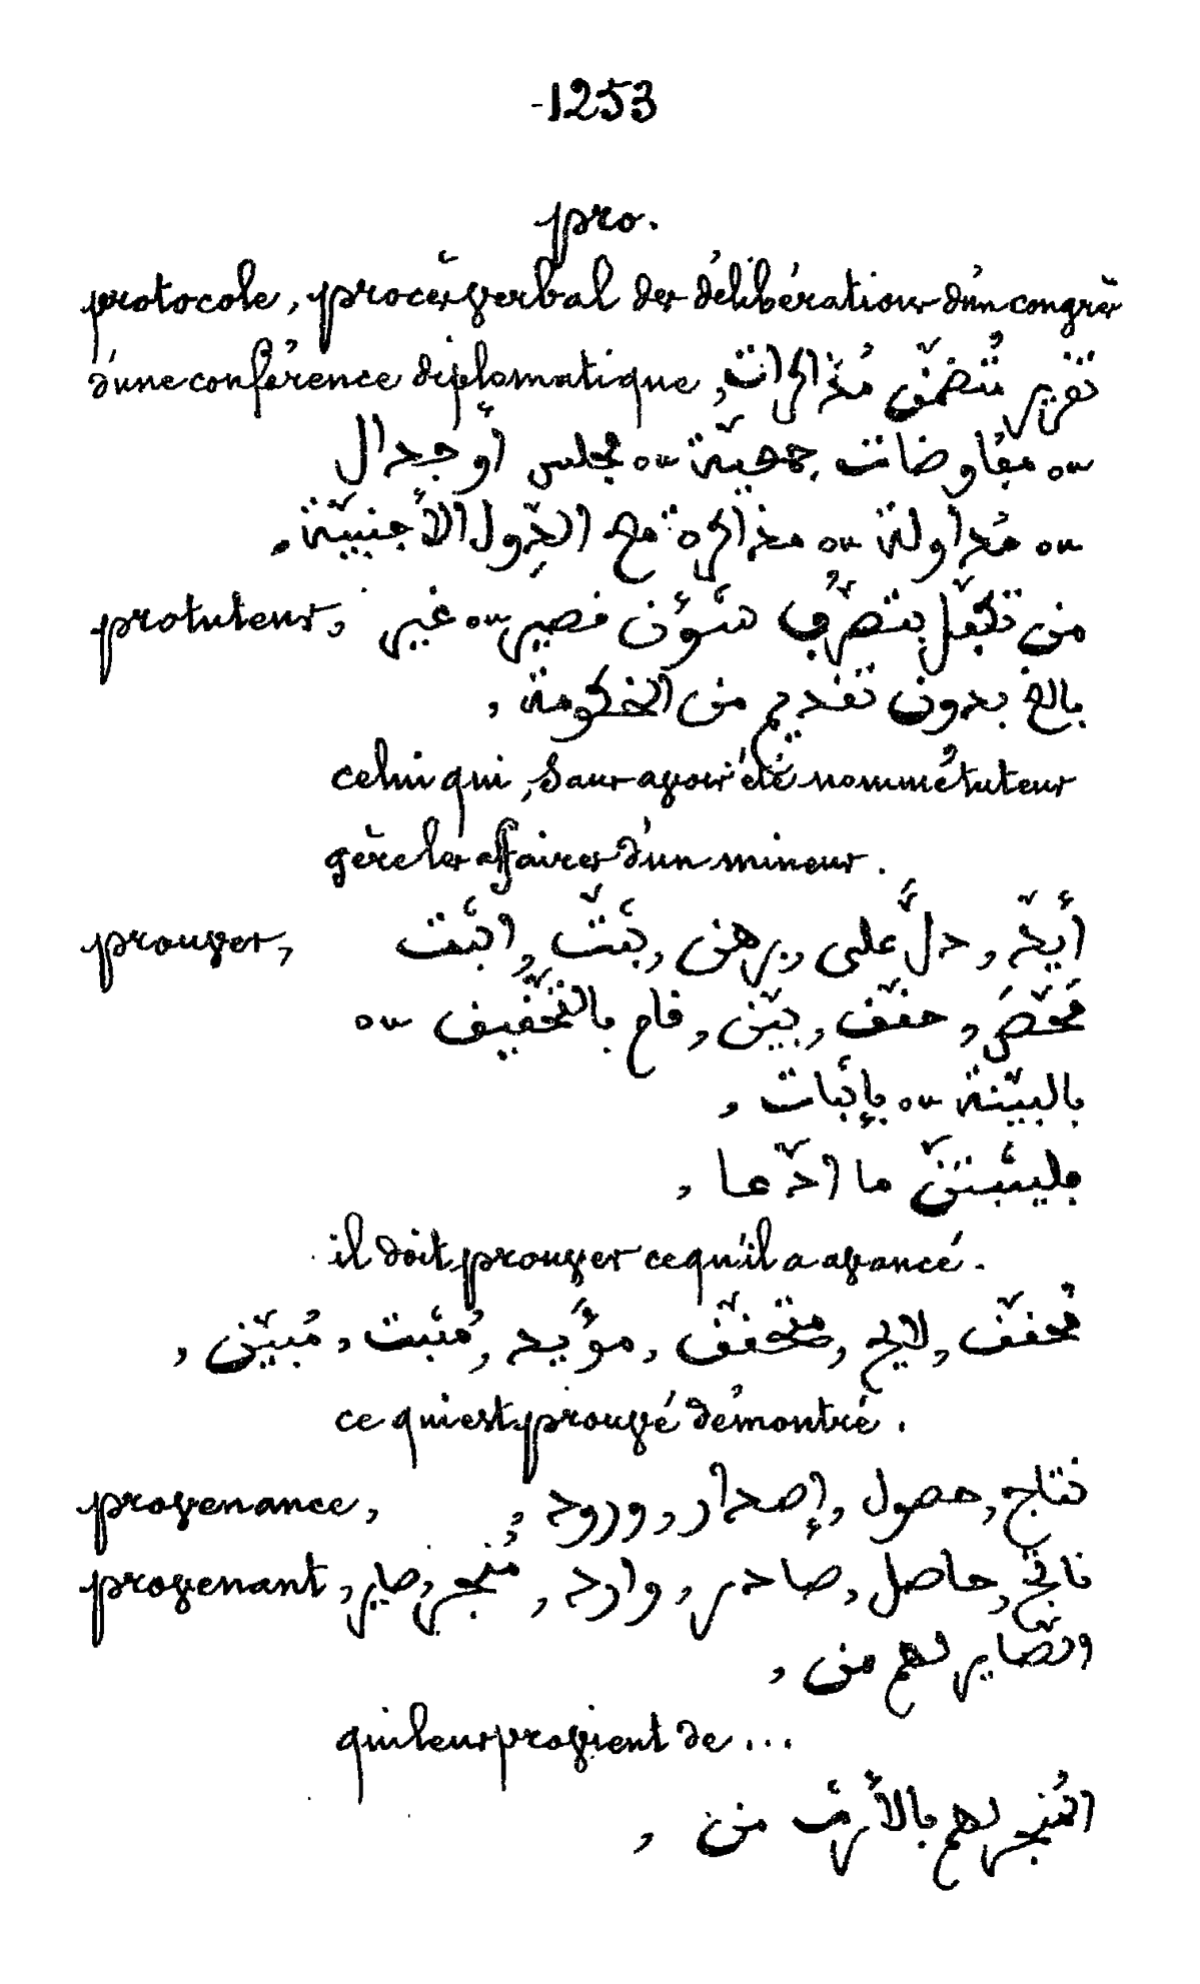 -1253
pro.
protocole, procès verbal des délibérations d'un congrès
d'une conférence diplomatique, تقرير تُتضمّن مُذاكرات
ou مفاوضات جمعيّة ou مجلس أو جدال
ou مُداولة ou مذاكرة مع الدّول الأجنبيّة,
protuteur, من تكفّل بتصرّف شؤن قصير ou غير
بالغ بدون تقديم من الحكومة,
celui qui, sans avoir été nommé tuteur
gère les affaires d'un mineur.
prouver, أيّد, دلّ على, برهن, ثبّت, اثبت
محّص, حقّق, بيّن, قام بالتحقيق ou
بالبيّنة ou بإثبات,
فليثبتنّ ما ادّعا,
il doit prouver ce qu'il a avancé.
مُحقّق, لايح, متحقّق, مؤيد, مُثبت, مُبيّن,
ce qui est prouvé démontré.
provenance, نتاج, حصول, إصدار, ورود,
provenant, ناتج, حاصل, صادر, وارد, مُنجر, صاير,
والصّاير لهم من,
qui leur provient de...
المُنجر لهم بالأرث من,